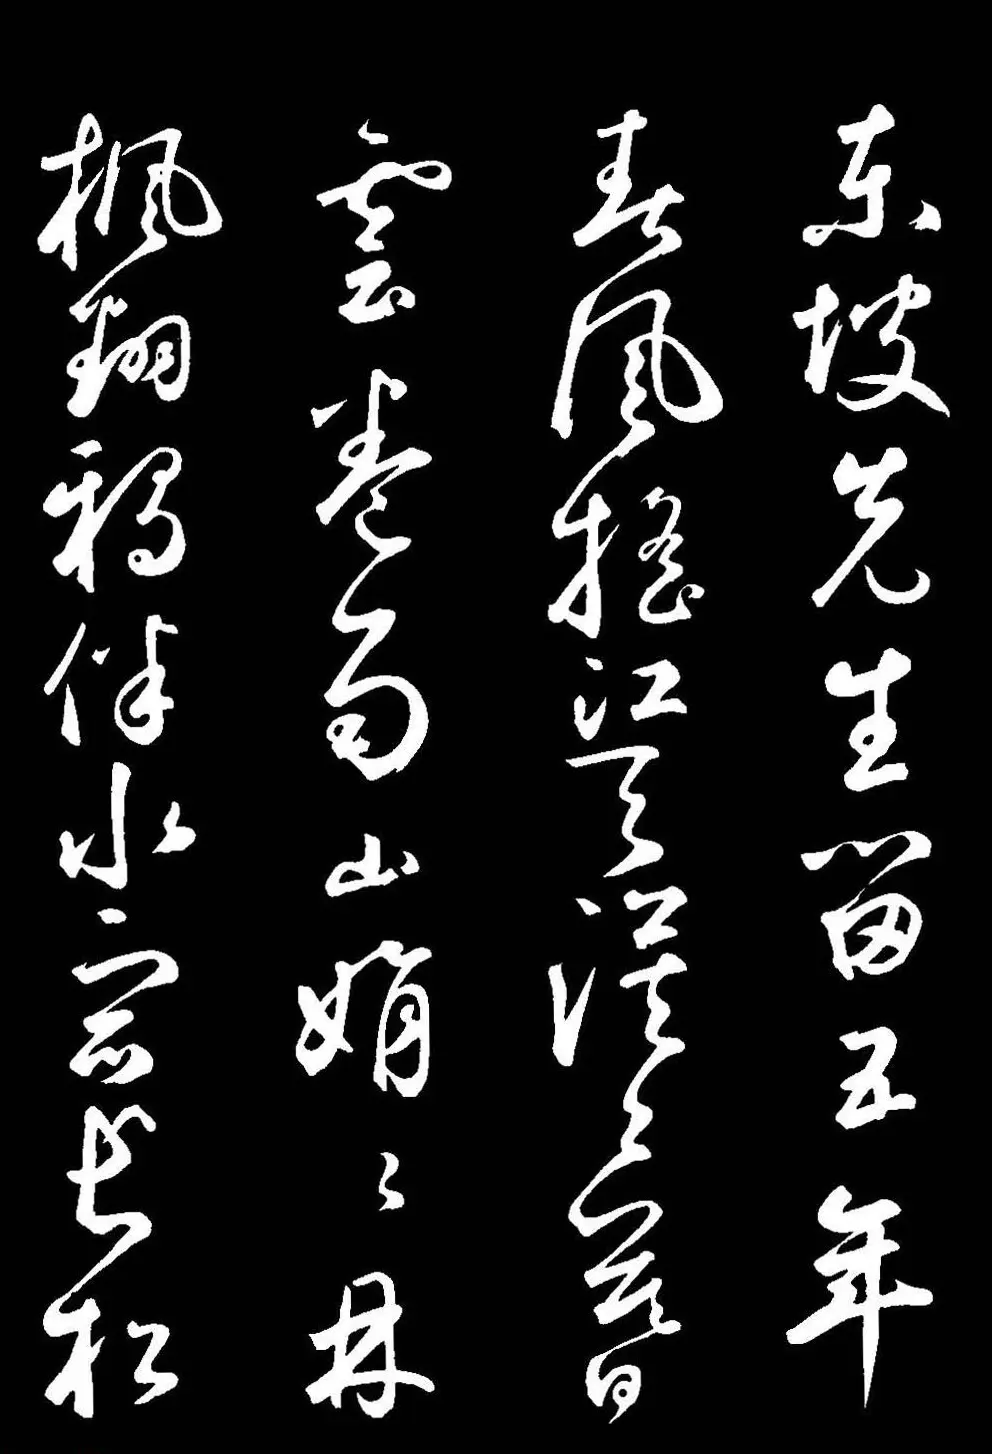 東坡先生留五年
春風搖江天漠々暮
雲卷雨山娟々丹
楓翻鴉伴水宿長松